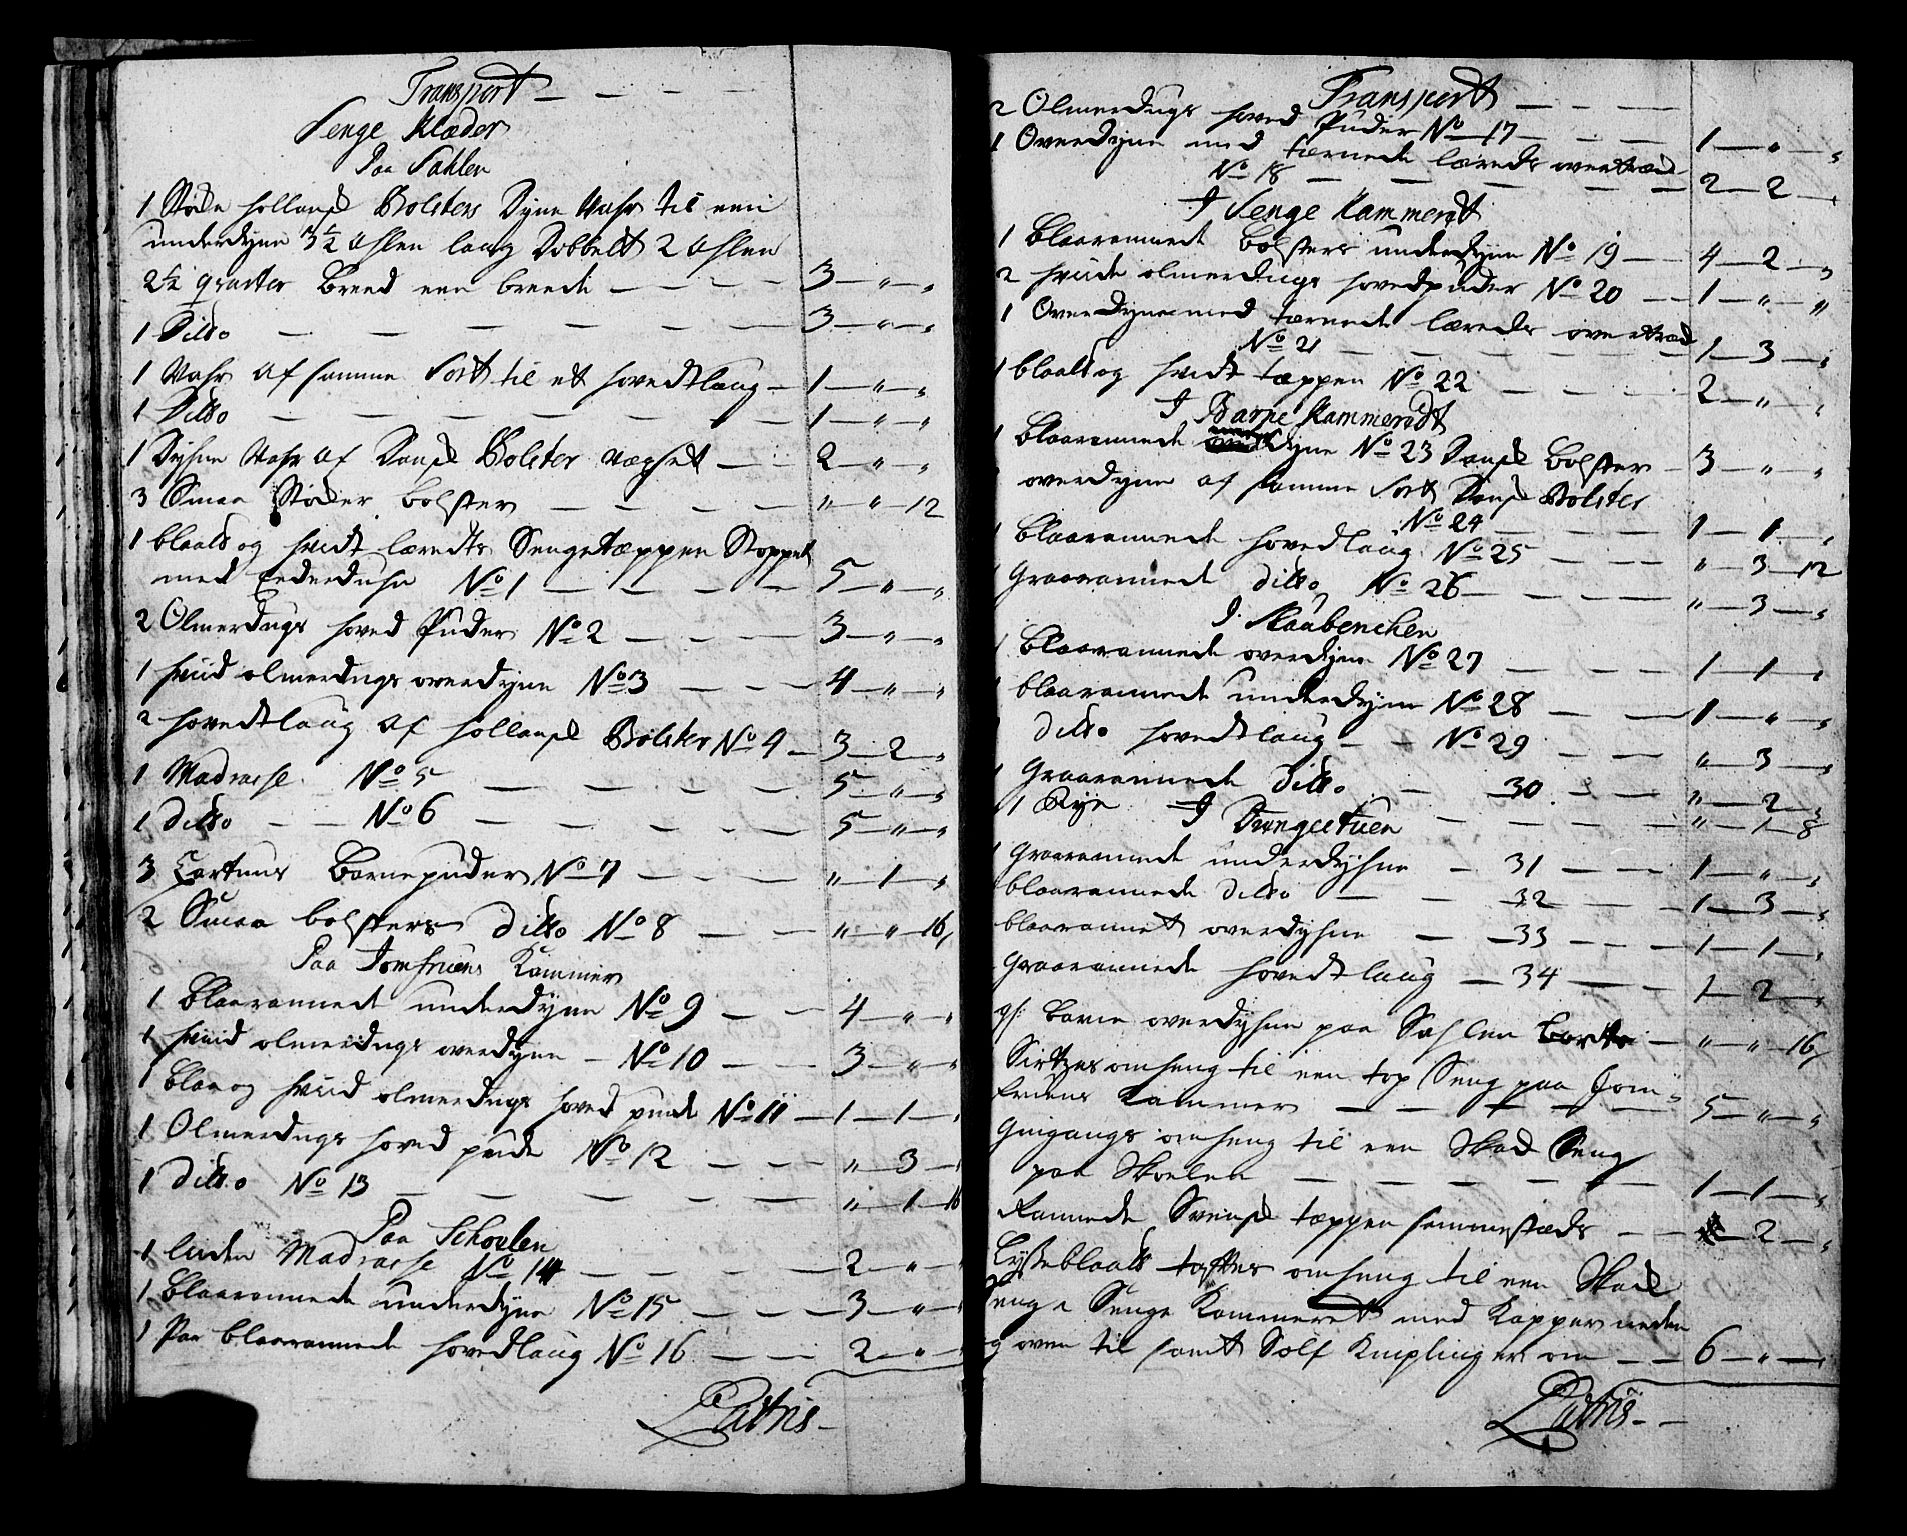 Transport — — — —
Senge Klæder
Paa Sahlen
1 Støke hollansk Bolsters Dyne Vahr til een
underdyne 3½ Ahlen lang Dobbelt 2 Ahlen
2½ qvarter breed een breede — — — — 3 — " — "
1 Ditto — — — — — — 3 — " — "
1 Vahr af samme Sort til et hovedtlaug — 1 — " — "
1 Ditto — — — — — — 1 — " — "
1 Dyhne Vahr af Dansk Bolster — — 2 — " — "
3 Smaa Støker bolster — — — — " — " — 12
1 blaat og hvidt læredts Sengetæppen Stoppet
med Ederduhn No 1 — — — — 5 — " — "
2 Olmerdugs hoved Puder No 2 — — — 3 — " — "
1 hvid olmerdugs overdyne No 3 — — — 4 — " — "
2 hovedtlaug af hollansk Bolster No 4 — 3 — 2 — "
1 Madrasse No 5 — — — — 5 — " — "
1 ditto — — No 6 — — — — 5 — " — "
3 Cartuns Bornepuder No 7 — — — " — 1 — "
2 Smaa bolsters ditto No 8 — — — " — " — 16
Paa Jomfruens Kammer
1 Blaarannedt underdyne No 9 — — 4 — " — "
1 hvid olmerdugs overdyne — No 10 — — 3 — " — "
1 blaa og hvid olmerdugs hoved pude No 11 — 1 — 1 — "
1 Olmerdugs hoved pude No 12 — — — " — 3 — "
1 ditto No 13 — — — — — " — 1 — 16
Paa Schoulen
1 linden Madrasse No 14 — — — — 2 — " — "
1 blaarannede underdyne No 15 — — — 3 — " — "
1 Par blaarannede hovedlaug No 16 — — 2 — " — "
Latris —
Transport — — —
2 Olmerdugs hoved Puder No 17 — — — 1 — " — "
1 Overdyne med tærnede læreds overtræk
No 18 — — — — — 2 — 2 — "
I Senge Kammerdt
1 blaarannedt bolsters underdyne No 19 — — 4 — 2 — "
2 hvide olmerdugs hovedpuder No 20 — — 1 — " — "
1 Overdyne med tærnede læreds overtræk
No 21 — — — — — 1 — 3 — "
1 blaat og hvidt tæppen No 22 — — — — 2 — " — "
I Barne Kammeredt
1 blaarannede dyne No 23 Dansk bolster — 3 — " — "
overdyne af samme Sort Dansk Bolster
No 24 — — — — 1 — 1 — "
1 blaarannede hovedlaug No 25 — — — " — 3 — 12
Graarannede ditto No 26 — — — — " — 3 — "
I Slaabenchen
1 blaarannede overdyne No 27 — — — 1 — 1 — "
1 blaarannede underdyne No 28 — — — 1 — " — "
ditto hovedtlaug — — No 29 — — — " — 3 — "
1 Graarannede ditto — 30 — — — " — 2 — "
1 Rye — — — — " — 1 — 8
I Drengestuen
1 Graarannede underdyhne — 31 — — — 1 — " — "
blaarannede ditto — — 32 — — — 1 — 3 — "
blaarannet overdyhne — — 33 — — — 1 — 1 — "
Graarannede hovedtlaug — 34 — — — 1 — 2 — "
gl: barne overdyhne paa Sahlen — " — " — 16
Sirtzes omheng til een top Seng paa Jom-
fruens Kammer — — — — — 5 — " — "
Gingangs omheng til een Skab Seng
paa Skoelen — — — — — — 1 — 1 — "
Rannede Svensk tæppen sammestæds — — 2 — "
Lysseblaat omheng til een Skab
Seng i Senge Kammeret med Kapper neden
og oven til samt Sølf Kniplinger om — — 6 — " — "
Latris — —